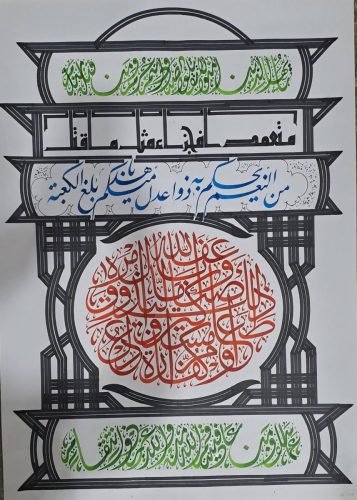 يا أيها الذين آمنوا لا تقتلوا الصيد وأنتم حرم ومن قتله منكم
متعمدا فجزاء مثل ما قتل
من النعم يحكم به ذوا عدل منكم هديا بالغ الكعبة
أو كفارة طعام مساكين أو عدل ذلك صياما ليذوق وبال أمره عفا الله
عما سلف ومن عاد فينتقم الله منه والله عزيز ذو انتقام